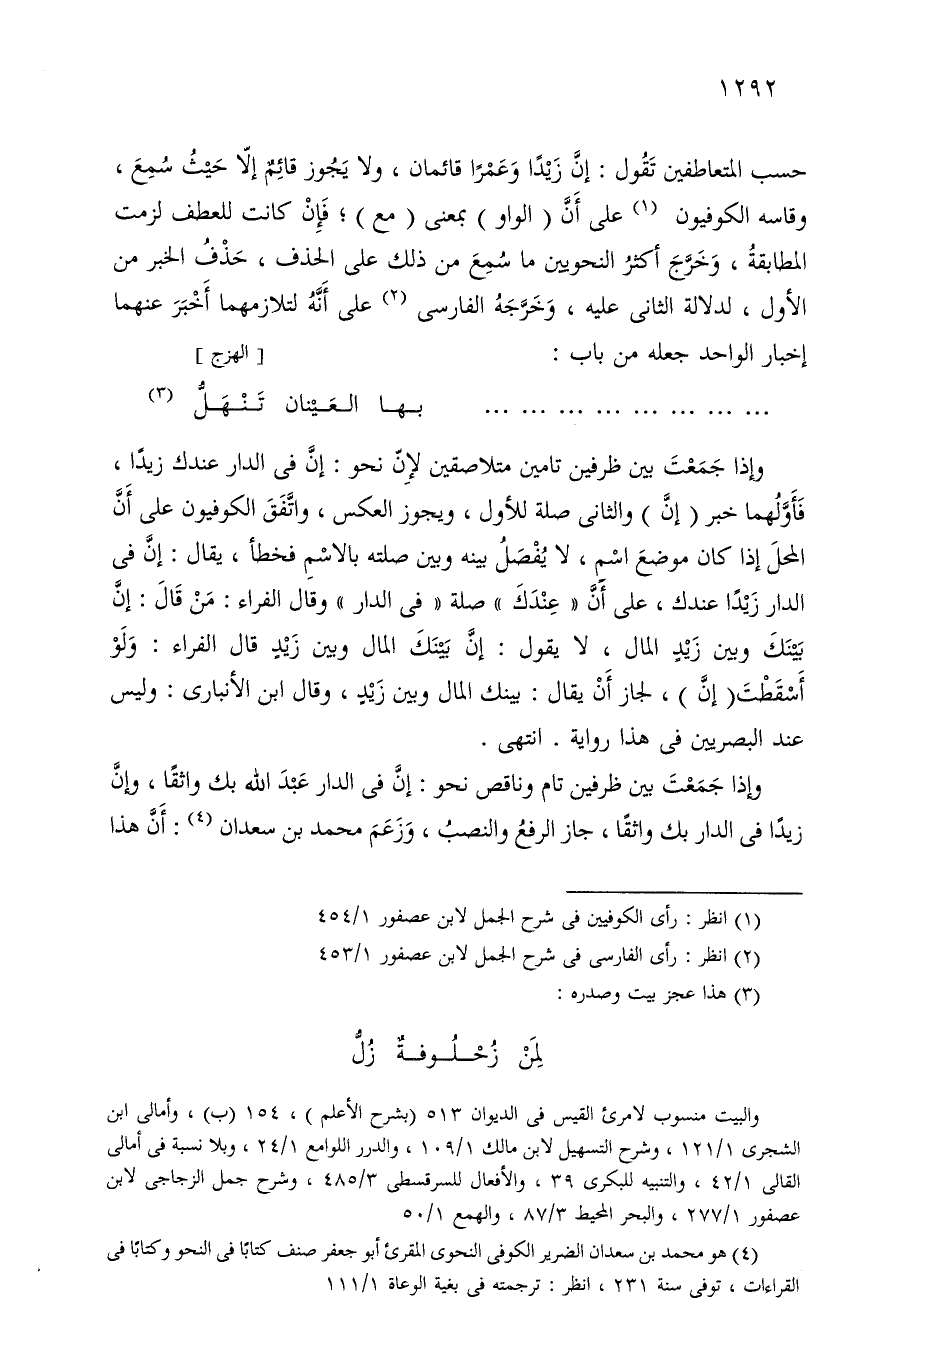 ١٢٩٢
حسب المتعاطفين تَقُول : إنَّ زَيْدًا وَعَمْرًا قائمان ، ولا يَجُوز قائِمٌ إلّا حَيْثُ سُمِعَ ،
وقاسه الكوفيون (١) على أَنَّ ( الواو ) بمعنى ( مع ) ؛ فَإِنْ كانت للعطف لزمت
المطابقةُ ، وَخَرَّجَ أكثرُ النحويين ما سُمِعَ من ذلك على الحذف ، حَذْفُ الخبر من
الأول ، لدلالة الثانى عليه ، وَخَرَّجَهُ الفارسى (٢) على أَنَّهُ لتلازمهما أَخْبَرَ عنهما
إخبار الواحد جعله من باب : [ الهزج ]
... ... ... ... ... ... ... ... بـهـا العَـيْنان تَـنْـهَـلُّ (٣)
وإذا جَمَعْتَ بين ظرفين تامين متلاصقين لإنّ نحو : إنَّ فى الدار عندك زيدًا ،
فَأَوَّلُهما خبر ( إنَّ ) والثانى صلة للأول ، ويجوز العكس ، واتَّفَقَ الكوفيون على أَنَّ
المحلَ إذا كان موضعَ اسْمٍ ، لا يُفْصَلُ بينه وبين صلته بالاسْمِ فخطأ ، يقال : إنَّ فى
الدار زَيْدًا عندك ، على أَنَّ « عِنْدَكَ » صلة « فى الدار » وقال الفراء : مَنْ قَالَ : إنَّ
بَيْنَكَ وبين زَيْدٍ المال ، لا يقول : إنَّ بَيْنَكَ المال وبين زَيْدٍ قال الفراء : وَلَوْ
أَسْقَطْتَ( إنَّ ) ، لجاز أَنْ يقال : بينك المال وبين زَيْدٍ ، وقال ابن الأنبارى : وليس
عند البصريين فى هذا رواية . انتهى .
وإذا جَمَعْتَ بين ظرفين تام وناقص نحو : إنَّ فى الدار عَبْدَ الله بك واثقًا ، وإنَّ
زيدًا فى الدار بك واثقًا ، جاز الرفعُ والنصبُ ، وَزَعَمَ محمد بن سعدان (٤) : أَنَّ هذا
(١) انظر : رأى الكوفيين فى شرح الجمل لابن عصفور ٤٥٤/١
(٢) انظر : رأى الفارسى فى شرح الجمل لابن عصفور ٤٥٣/١
(٣) هذا عجز بيت وصدره :
لِمَنْ زُحْـلُـوفـةٌ زُلُّ
والبيت منسوب لامرئ القيس فى الديوان ٥١٣ (بشرح الأعلم ) ، ١٥٤ (ب) ، وأمالى ابن
الشجرى ١٢١/١ ، وشرح التسهيل لابن مالك ١٠٩/١ ، والدرر اللوامع ٢٤/١ ، وبلا نسبة فى أمالى
القالى ٤٢/١ ، والتنبيه للبكرى ٣٩ ، والأفعال للسرقسطى ٤٨٥/٣ ، وشرح جمل الزجاجى لابن
عصفور ٢٧٧/١ ، والبحر المحيط ٨٧/٣ ، والهمع ٥٠/١
(٤) هو محمد بن سعدان الضرير الكوفى النحوى المقرئ أبو جعفر صنف كتابًا فى النحو وكتابًا فى
القراءات ، توفى سنة ٢٣١ ، انظر : ترجمته فى بغية الوعاة ١١١/١